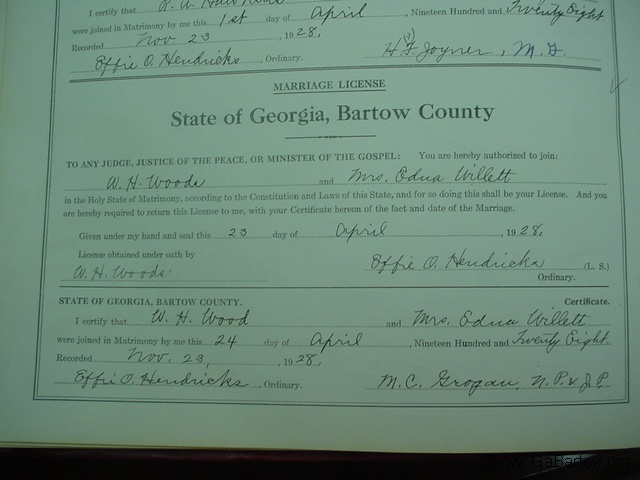 I certify that
were joined in Matrimony by me this 1st day of April , Nineteen Hundred and Twenty Eight
Recorded Nov 23 , 1928,
Effie O. Hendricks , Ordinary. H F Joyner, M. G.
MARRIAGE LICENSE
State of Georgia, Bartow County
TO ANY JUDGE, JUSTICE OF THE PEACE, OR MINISTER OF THE GOSPEL: You are hereby authorized to join:
W. H. Woods and Mrs. Edna Willett
in the Holy State of Matrimony, according to the Constitution and Laws of this State, and for so doing this shall be your License. And you
are hereby required to return this License to me, with your Certificate hereon of the fact and date of the Marriage.
Given under my hand and seal this 23 day of April , 1928,
License obtained under oath by Effie O. Hendricks (L. S.)
W. H. Woods Ordinary.
STATE OF GEORGIA, BARTOW COUNTY. Certificate.
I certify that W. H. Wood and Mrs. Edna Willett
were joined in Matrimony by me this 24 day of April , Nineteen Hundred and Twenty Eight.
Recorded Nov. 23, , 1928,
Effie O. Hendricks , Ordinary. M. C. Grogan, N. P. & J. P.